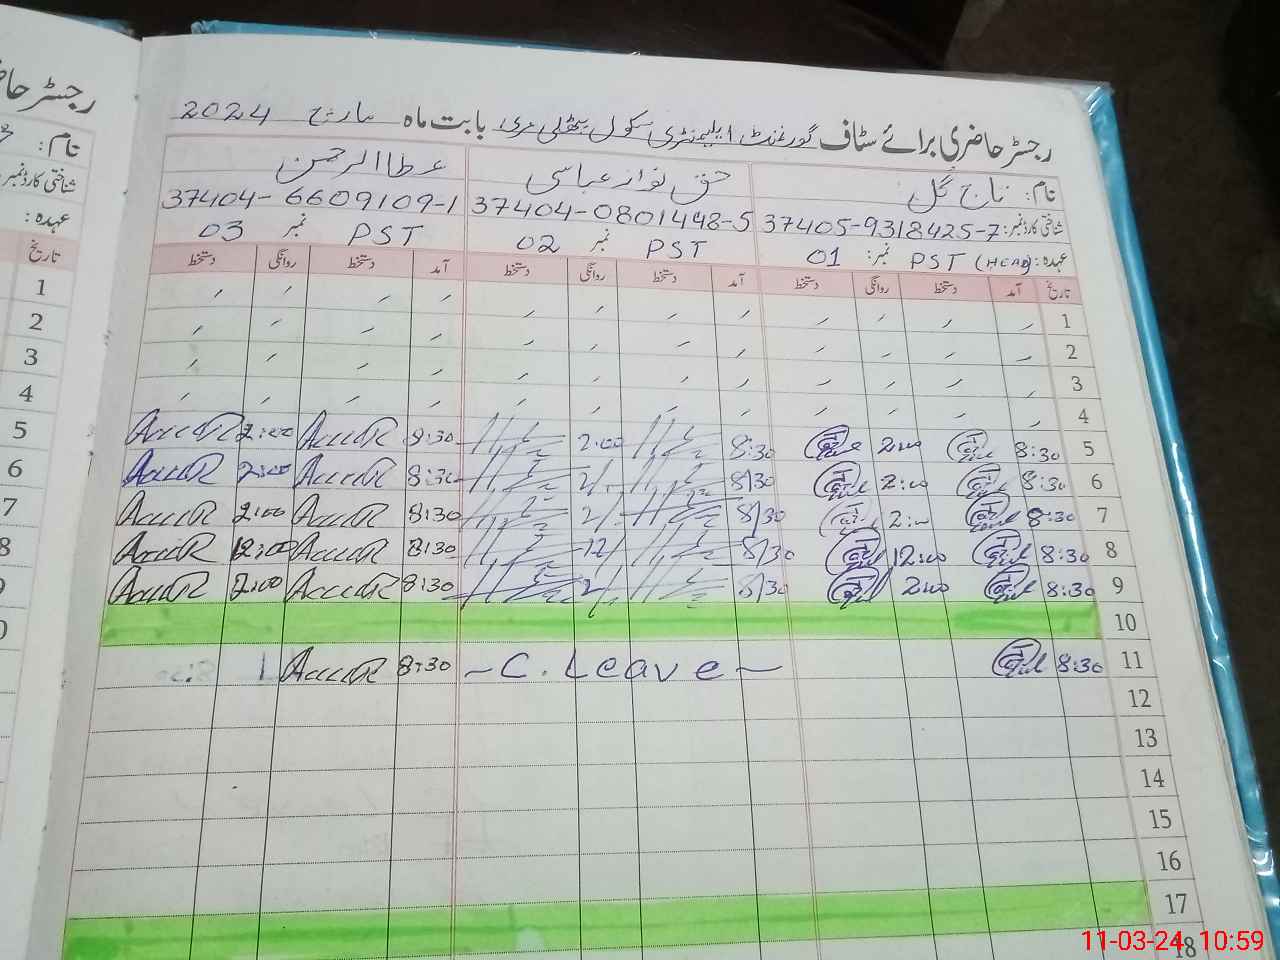 رجسٹر حاضری برائے سٹاف گورنمنٹ ایلیمنٹری سکول پھٹلی مری بابت ماہ مارچ 2024
نام: تاج گل حق نواز عباسی عطاالرحمن
شناختی کارڈ نمبر: 37405-9318425-7 37404-0801498-5 37404-6609109-1
عہدہ: PST (HEAD) نمبر: 01 PST نمبر 02 PST نمبر 03
تاریخ آمد دستخط روانگی دستخط آمد دستخط روانگی دستخط آمد دستخط روانگی دستخط
1
2
3
4
5 8:30 2:00 8:30 2:00 8:30 2:00
6 8:30 2:00 8/30 2/ 8:30 2:00
7 8:30 2:00 8/30 2/ 8:30 2:00
8 8:30 12:00 8/30 12/ 8:30 12:00
9 8:30 2:00 8/30 2/ 8:30 2:00
10
11 8:30 ~ C. Leave ~ 8:30
12
13
14
15
16
17
18
رجسٹر
نام:
شناختی کارڈ نمبر:
عہدہ:
تاریخ
1
2
3
4
5
6
7
8
11-03-24 10:59